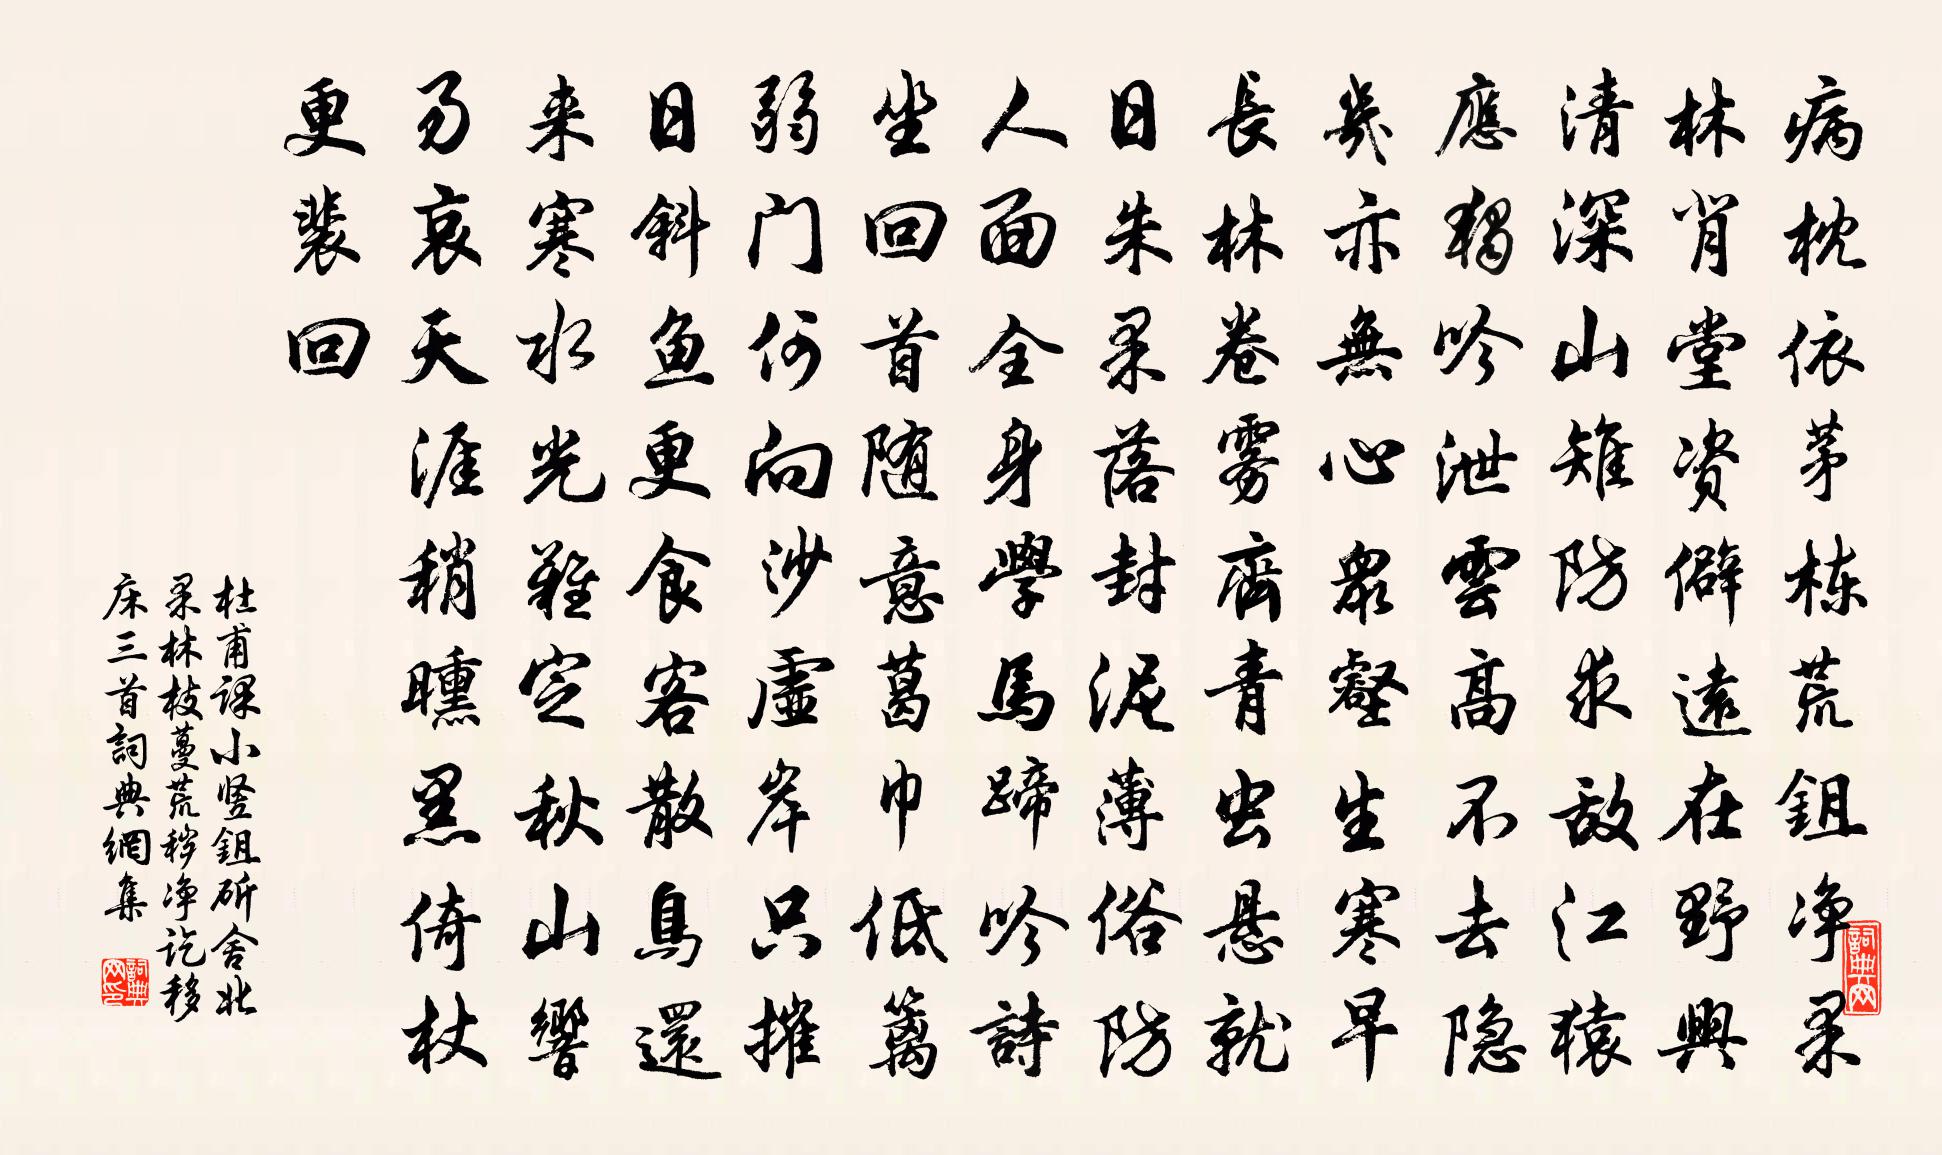 病枕依茅栋荒鉏净果
林背堂资僻遠在野興
清深山雉防求敌江猿
應獨吟泄雲高不去隐
幾亦無心衆壑生寒早
長林卷雾齊青虫悬就
日朱果落封泥薄俗防
人面全身學馬蹄吟詩
坐回首随意葛巾低篱
弱门何向沙虚岸只摧
日斜鱼更食客散鳥還
来寒水光難定秋山響
易哀天涯稍曛黑倚杖
更裴回
杜甫課小竖鉏斫舍北
果林枝蔓荒秽净讫移
床三首詞典網集
詞典网
詞典网印